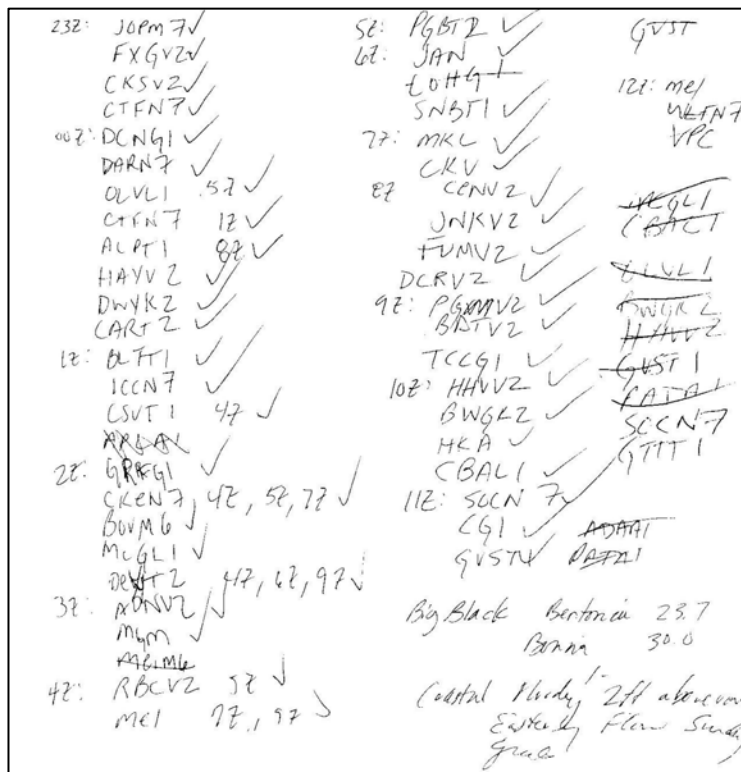 23Z: JOPM7 ✓
FXGV2 ✓
CKSV2 ✓
CTFN7 ✓
00Z: DCNG1 ✓
DARN7 ✓
OLVL1 5Z ✓
CTFN7 1Z ✓
ALPT1 8Z ✓
HAYV2 ✓
DWYK2 ✓
CART2 ✓
1Z: BLFT1 ✓
ICCN7 ✓
CSVT1 4Z ✓
2Z: GRFG1 ✓
CKEN7, 4Z, 5Z, 7Z ✓
BOVM6 ✓
McGL1 ✓
4Z, 6Z, 9Z ✓
3Z: ADNV2 ✓
MGM ✓
4Z: RBCV2 5Z ✓
mel 7Z, 9Z ✓
5Z: PGBT2 ✓
6Z: JAN ✓
LOHG1
SNBT1 ✓
7Z: MKL ✓
CKV ✓
8Z CENV2 ✓
JNKV2 ✓
TUMV2 ✓
DCRV2 ✓
9Z: PGXMV2 ✓
BATV2 ✓
TCCG1 ✓
10Z: HHVV2 ✓
BWGK2 ✓
HKA ✓
CBAL1 ✓
11Z: SOCN7 ✓
CG1 ✓
GVST ✓
GVST
12Z: mel
WLTN7
VPC
CBAL1
OLVL1
BWGK2
HHVV2
GVST1
PATA1
SOCN7
GTTT1
ADAA1
PATA1
Big Black Bentonia 23.7
Bovina 30.0
Coastal 2ft above
Easterly Flow Sunday